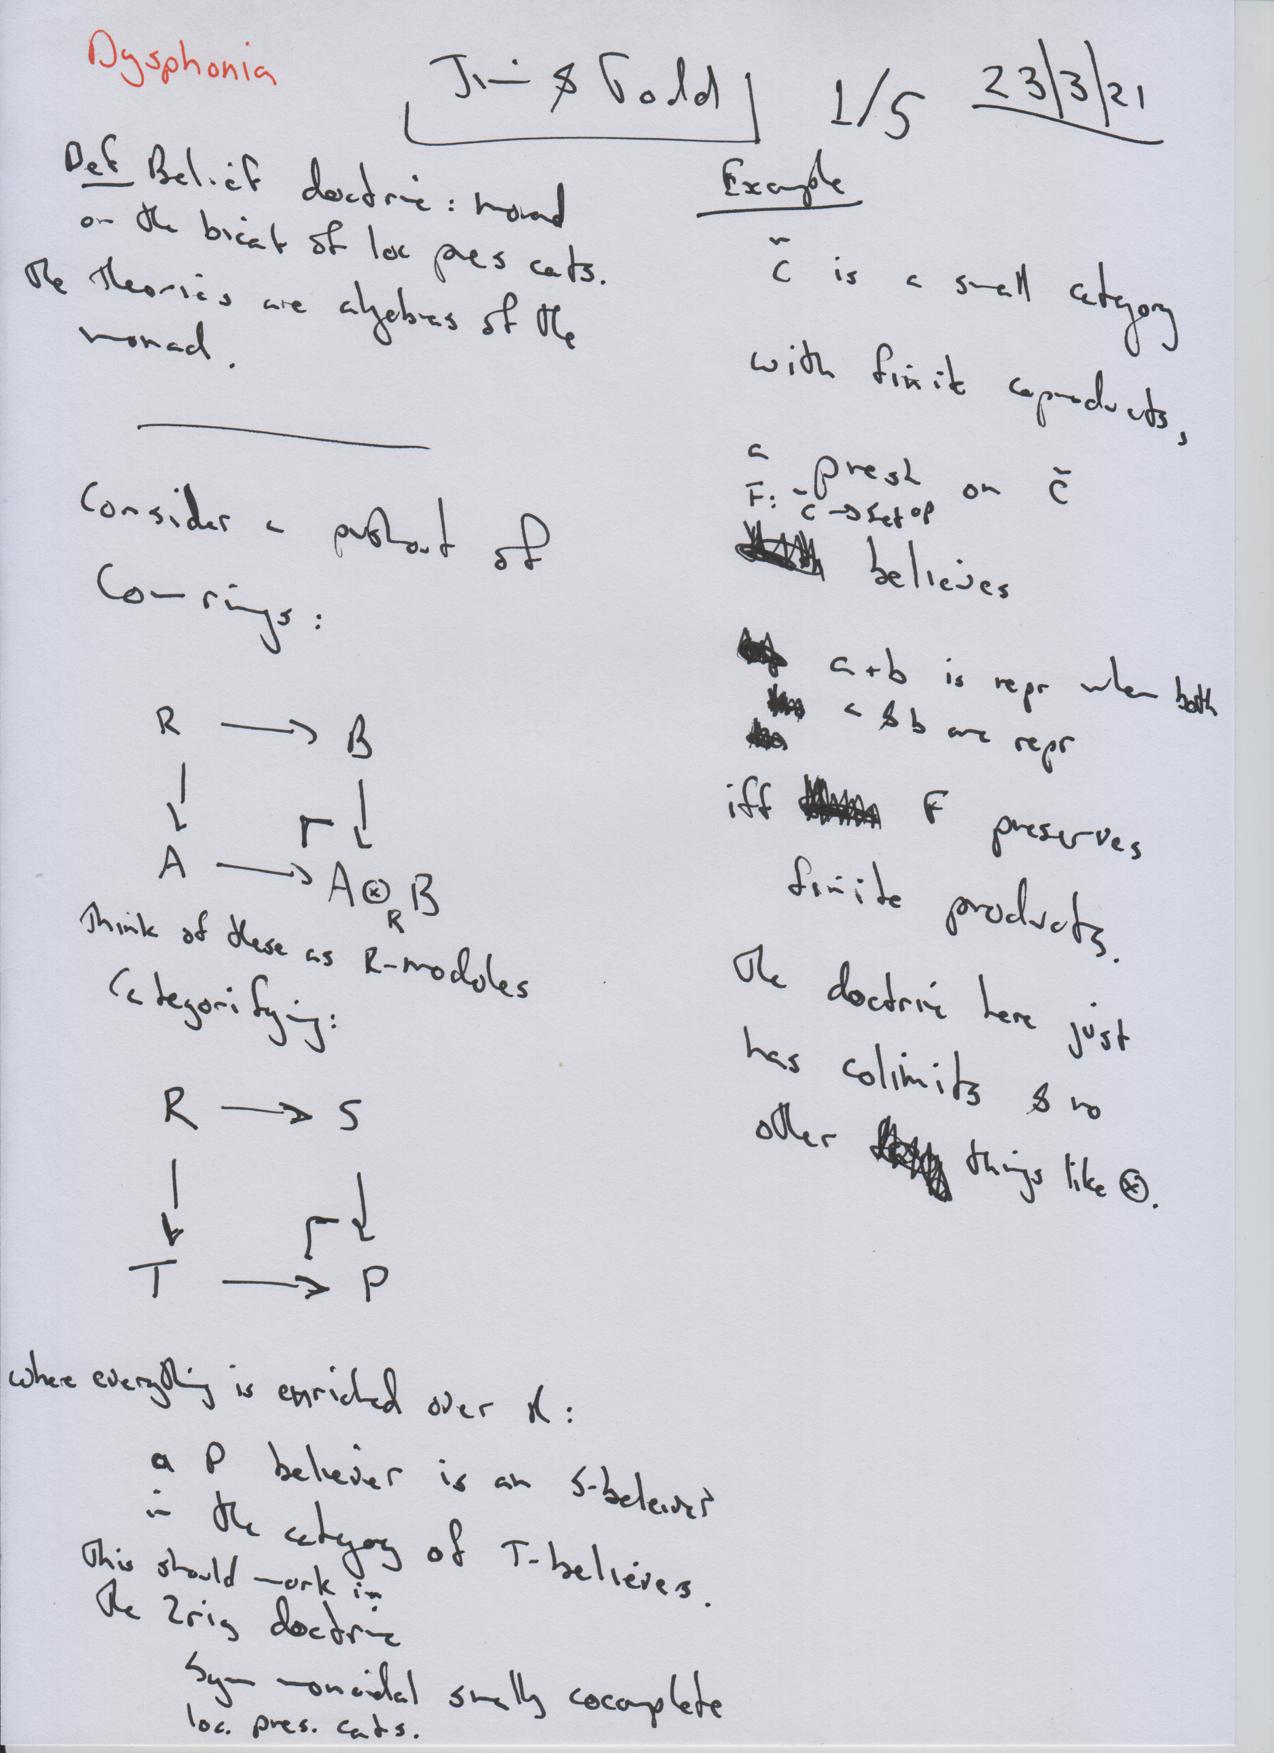 Dysphonia
Jim & Todd
1/5
23/3/21
Def Belief doctrine: monad
on the bicat of loc pres cats.
The theories are algebras of the
monad.
Consider a pushout of
Com rings:
R → B
↓ ↓
A → A ⊗_R B
Think of these as R-modules
Categorifying:
R → S
↓ ↓
T → P
where everything is enriched over R:
a P believer is an S-believer
in the category of T-believers.
This should work in
the 2rig doctrine
Sym monoidal smally cocomplete
loc. pres. cats.
Example
C̃ is a small category
with finite coproducts,
a presh on C̃
F: C̃ → Set op
believes
a+b is repr when both
a & b are repr
iff F preserves
finite products.
The doctrine here just
has colimits & no
other things like ⊗.